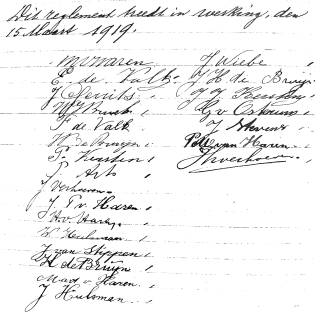 Dit reglement treedt in werking, den
15 Maart 1919.
M v Haren
E. de Valk
J Gerrits
F de Valk
H De Bruijn
P. Kersten
P. Arts
J Verhoeven
J P v Haren
H v Hart
W Heesman
J van Stippen
H de Bruijn
Mad v Haren
J Hulsman
J Wiebe
H de Bruijn
J J Kersten
G v
J Stevens
P van Haren
J Verhoeven